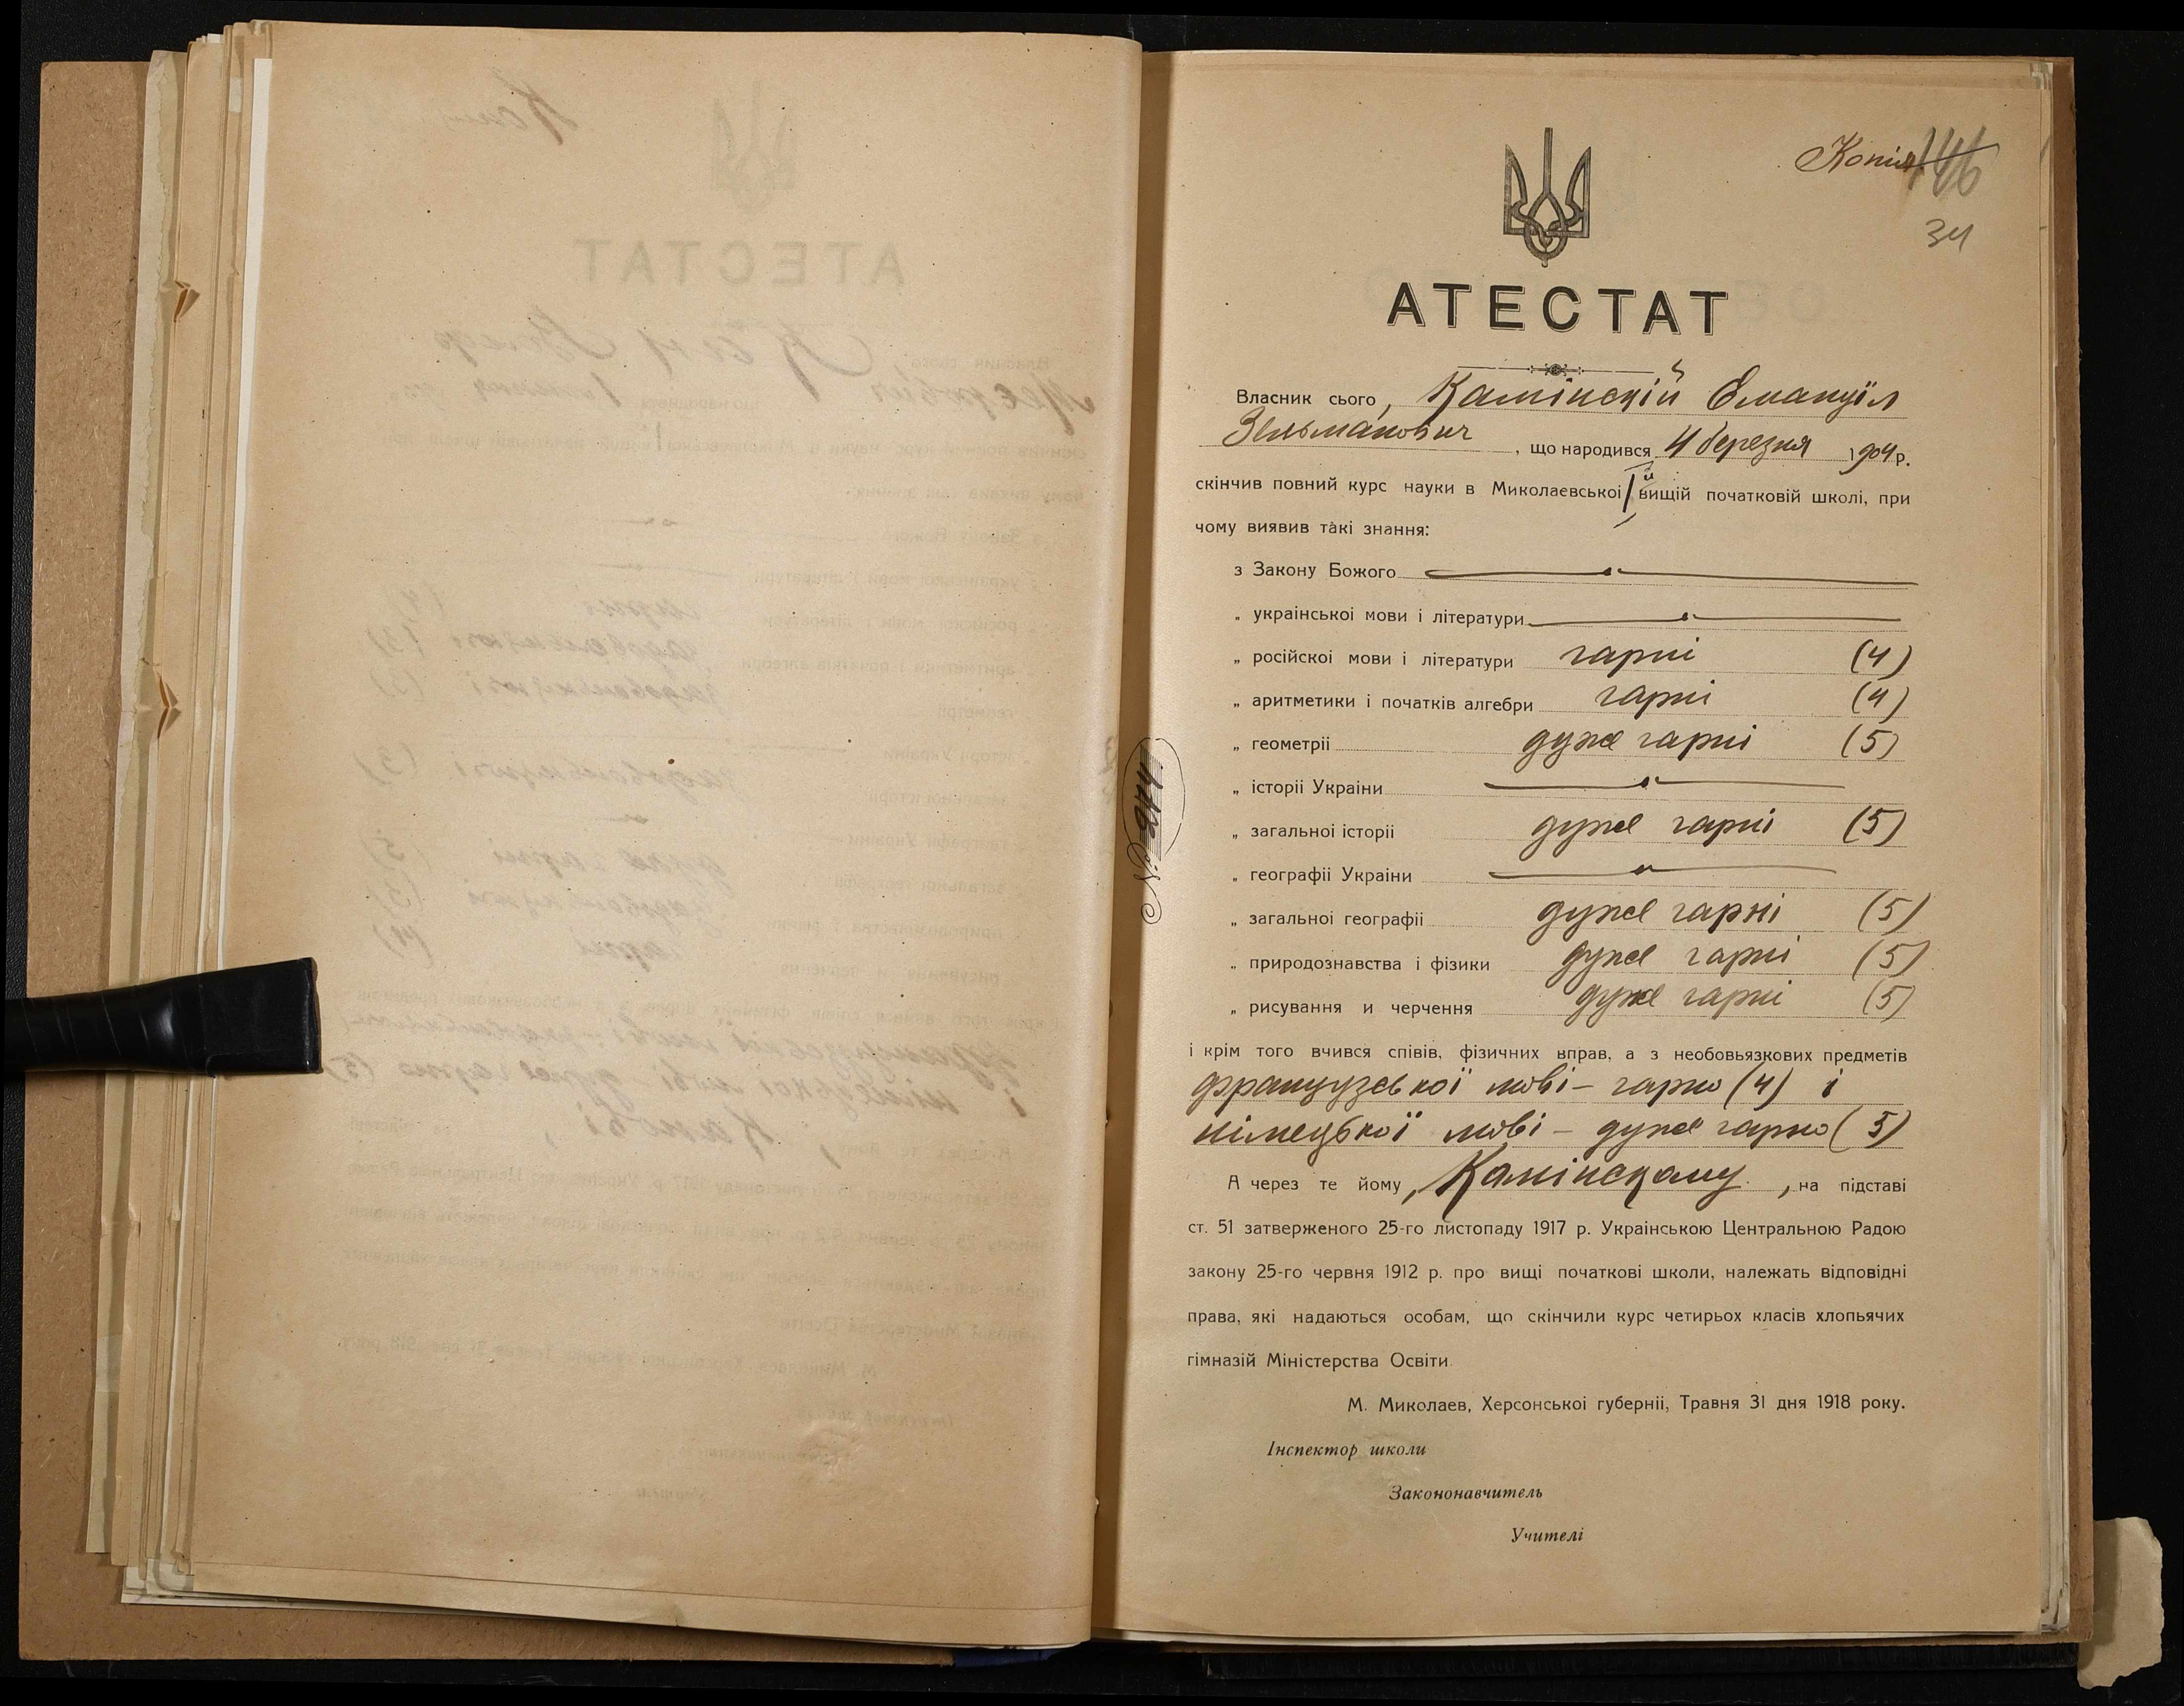 Копія
146
34
АТЕСТАТ
Власник сього, Камінскій Емануїл
Зельманович, що народився 4 березня 1904 р.
скінчив повний курс науки в Миколаевськоі І й вищій початковій школі, при
чому виявив такі знання:
з Закону Божого
„ украінськоі мови і літератури
„ російскоі мови і літератури гарні (4)
„ аритметики і початків алгебри гарні (4)
„ геометріі дуже гарні (5)
„ історіі Украіни
„ загальноі історіі дуже гарні (5)
„ географіі Украіни
„ загальноі географіі дуже гарні (5)
„ природознавства і фізики дуже гарні (5)
„ рисування и черчення дуже гарні (5)
і крім того вчився співів, фізичних вправ, а з необовьязкових предметів
французської мові – гарно (4) і
німецької мові – дуже гарно (5)
А через те йому, Камінскому, на підставі
ст. 51 затверженого 25-го листопаду 1917 р. Украінською Центральною Радою
закону 25-го червня 1912 р. про вищі початкові школи, належать відповідні
права, які надаються особам, що скінчили курс четирьох класів хлопьячих
гімназій Міністерства Освіти.
М. Миколаев, Херсонськоі губерніі, Травня 31 дня 1918 року.
Інспектор школи
Закононавчитель
Учителі